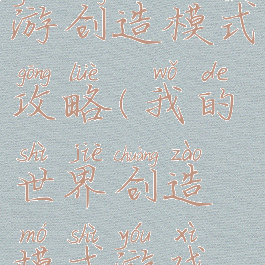 游创造模式
gōng lüè wǒ de
攻略(我的
shì jiè chuàng zào
世界创造
mó shì yóu xì
模式游戏